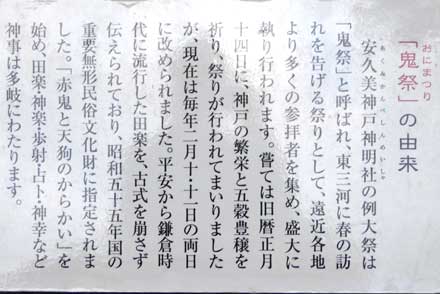 おにまつり
「鬼祭」の由来
あくみかんべしんめいしゃ
安久美神戸神明社の例大祭は
「鬼祭」と呼ばれ、東三河に春の訪
れを告げる祭りとして、遠近各地
より多くの参拝者を集め、盛大に
執り行われます。嘗ては旧暦正月
十四日に、神戸の繁栄と五穀豊穣を
祈り、祭りが行われてまいりました
が、現在は毎年二月十・十一日の両日
に改められました。平安から鎌倉時
代に流行した田楽を、古式を崩さず
伝えられており、昭和五十五年国の
重要無形民俗文化財に指定されま
した。「赤鬼と天狗のからかい」を
始め、田楽・神楽・歩射・占卜・神幸など
神事は多岐にわたります。